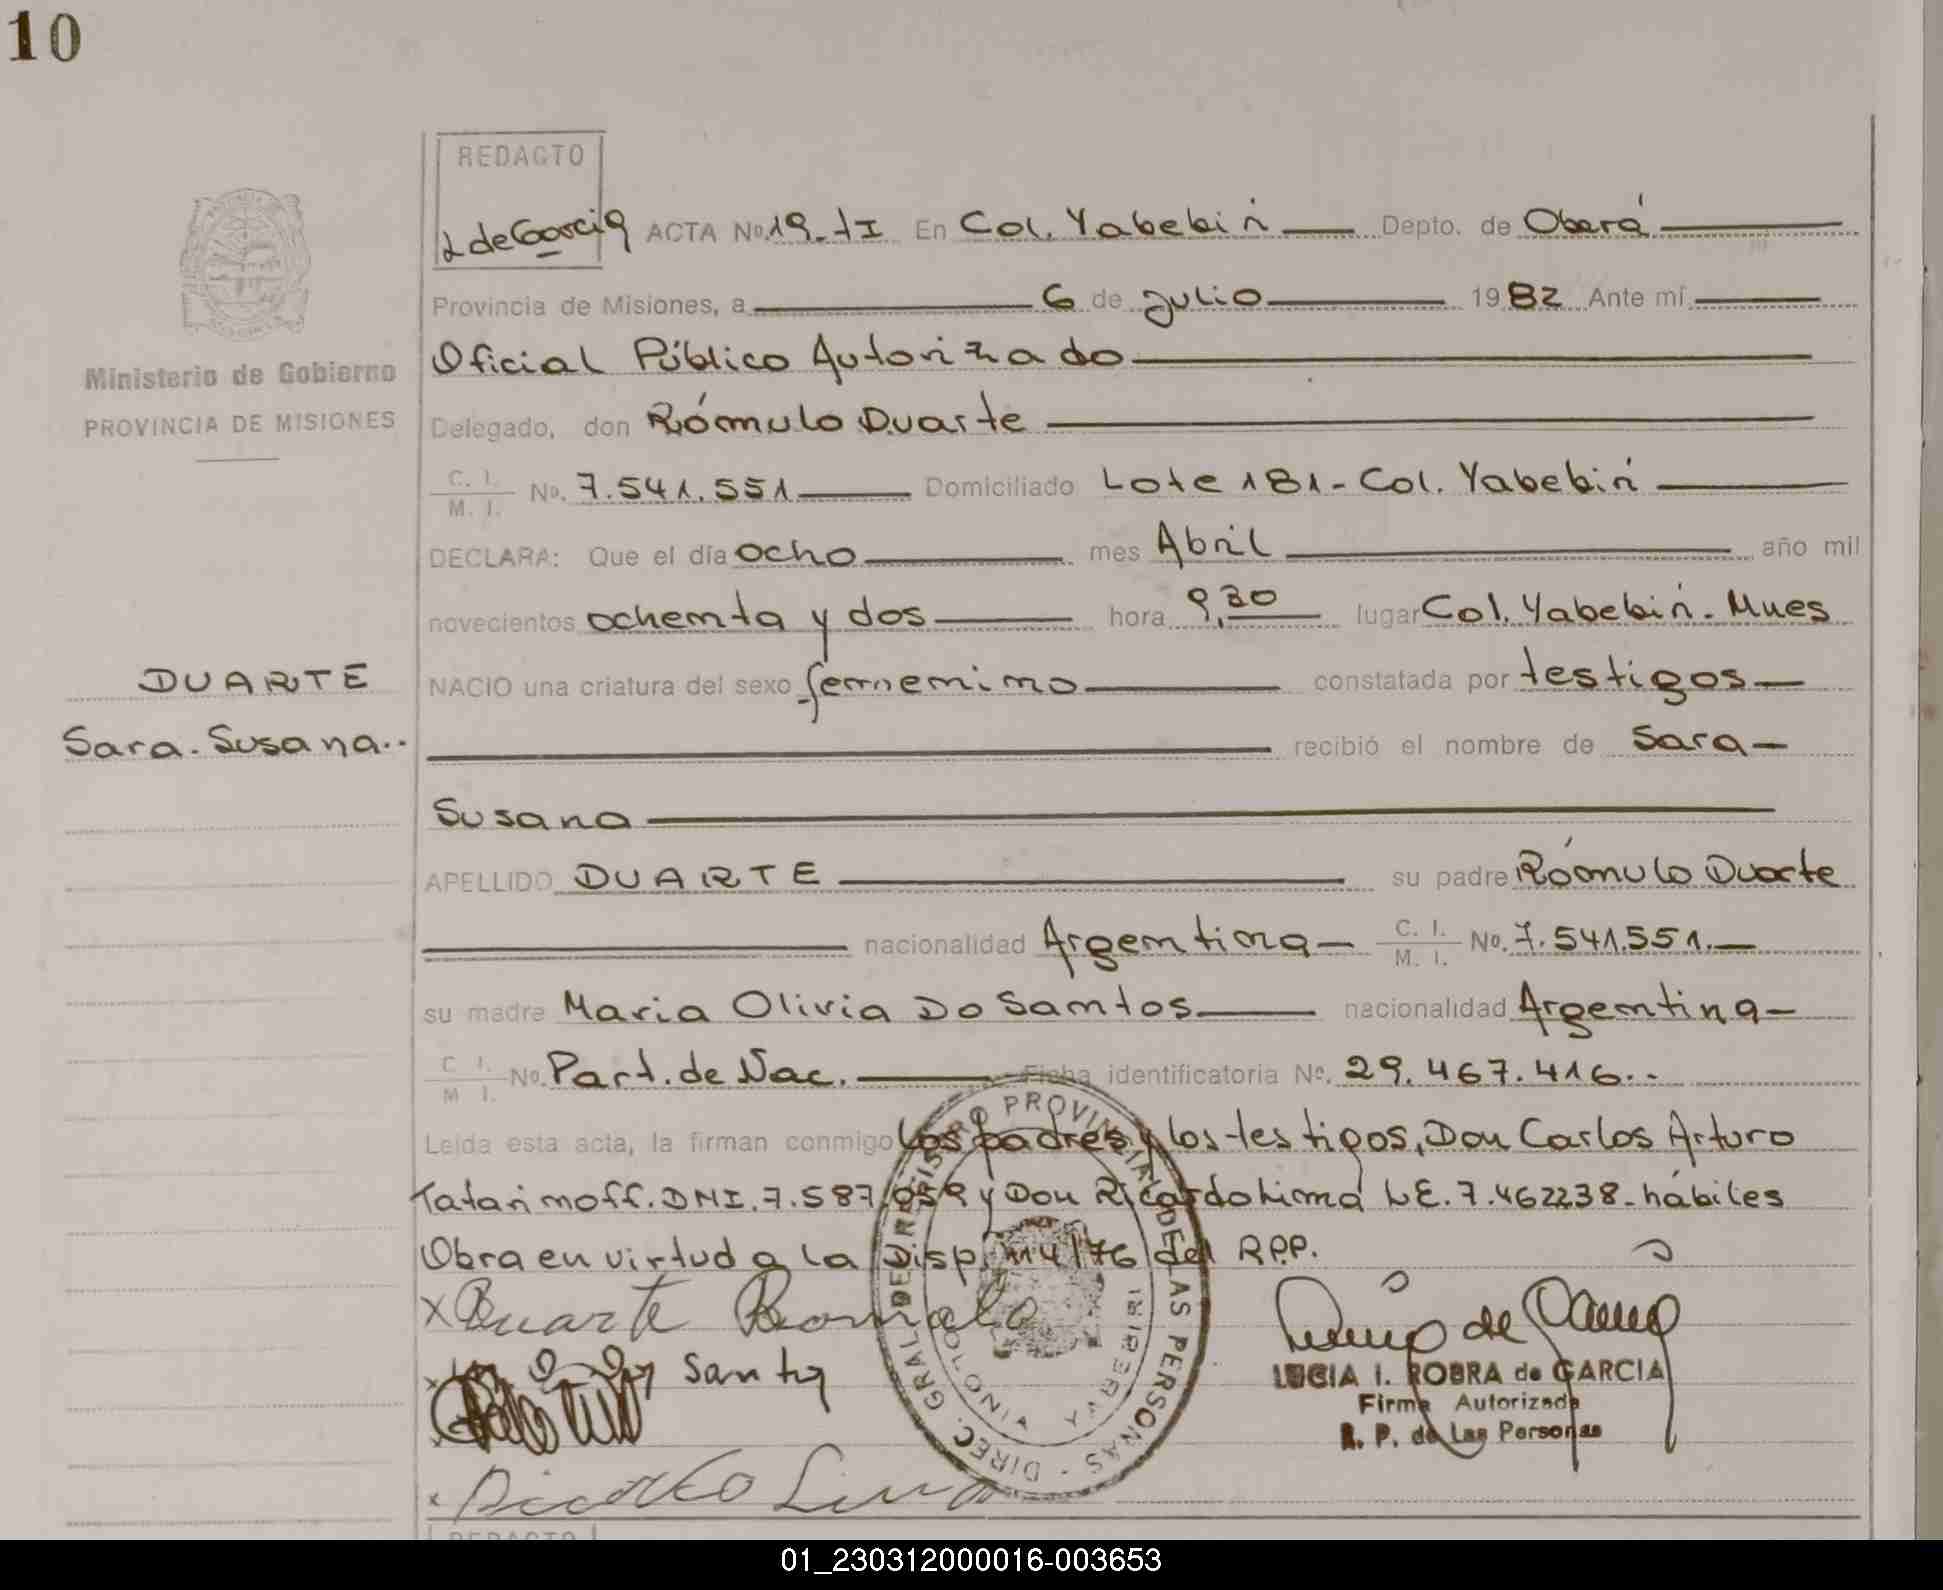 10
REDACTO
L de Garcia ACTA No. 19-tI En Col. Yabebirí Depto. de Oberá
Provincia de Misiones, a 6 de Julio 1982 Ante mí
Oficial Público Autorizado
Ministerio de Gobierno
PROVINCIA DE MISIONES
Delegado, don Rómulo Duarte
C. I. / M. I. No. 7.541.551 Domiciliado Lote 181 - Col. Yabebirí
DECLARA: Que el día ocho mes Abril año mil
novecientos ochenta y dos hora 9,30 lugar Col. Yabebirí. Mnes
DUARTE
NACIO una criatura del sexo femenino constatada por testigos
Sara. Susana..
recibió el nombre de Sara
Susana
APELLIDO DUARTE su padre Rómulo Duarte
nacionalidad Argentina C. I. / M. I. No. 7.541.551.
su madre Maria Olivia Do Santos nacionalidad Argentina
C. I. / M. I. No. Part. de Nac. Ficha identificatoria Nº. 29.467.416..
Leída esta acta, la firman conmigo los padres y los testigos, Don Carlos Arturo
Tatarinoff. DNI. 7.587.059 y Don Ricardo Lima LE. 7.462238 - hábiles
Obra en virtud a la Disp. 114/76 del R.P.P.
x Duarte Romulo
Santo
Ricardo Lima
LUCIA I. ROBRA de GARCIA
Firma Autorizada
R. P. de Las Personas
DIREC. GRAL DEL REGISTRO PROVINCIAL DE LAS PERSONAS
COLONIA YABEBIRI
REDACTO
01_230312000016-003653